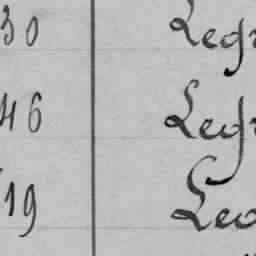 30 Legr
46 Legr
19 Leg